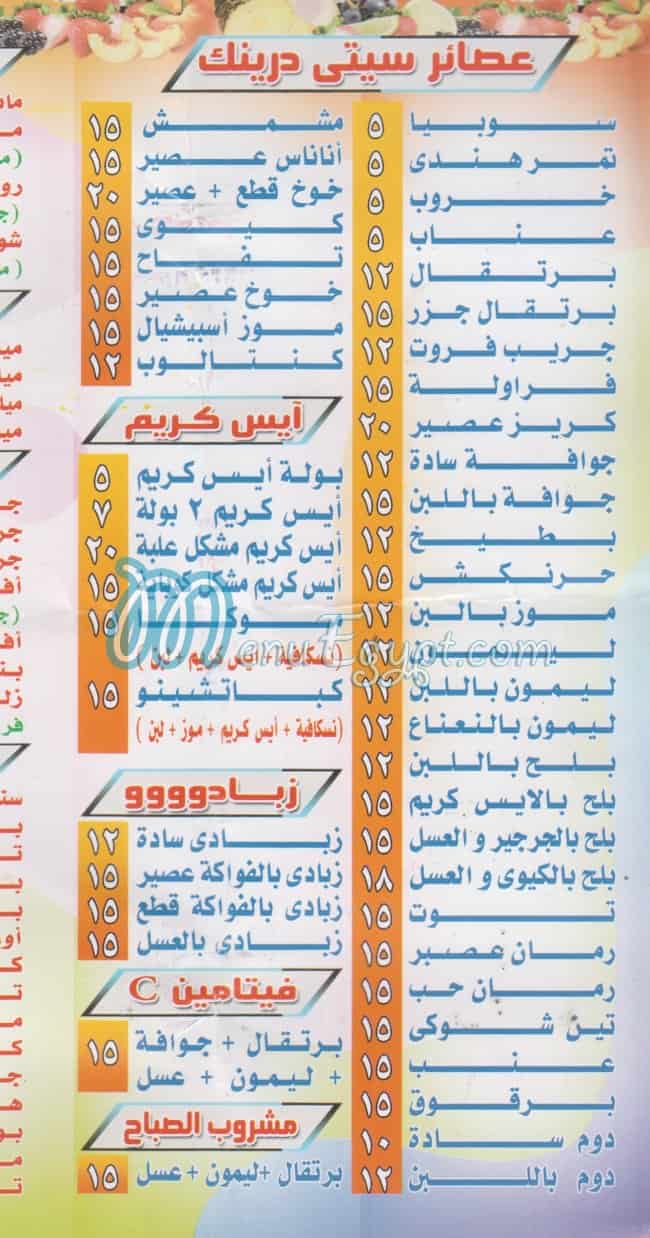 عصائر سيتى درينك
سوبيا ٥
تمر هندى ٥
خروب ٥
عناب ٥
برتقال ١٢
برتقال جزر ١٥
جريب فروت ١٢
فراولة ١٥
كريز عصير ٢٠
جوافة سادة ١٢
جوافة باللبن ١٥
بطيخ ١٢
حرنكش ١٥
موز بالبن ١٢
ليمون ١٢
ليمون باللبن ١٢
ليمون بالنعناع ١٢
بلح باللبن ١٢
بلح بالايس كريم ١٥
بلح بالجرجير و العسل ١٥
بلح بالكيوى و العسل ١٨
توت ١٥
رمان عصير ١٥
رمان حب ١٥
تين شوكى ١٥
عنب ١٥
برقوق ١٥
دوم سادة ١٠
دوم باللبن ١٢
مشمش ١٥
أناناس عصير ١٥
خوخ قطع + عصير ٢٠
كيوى ١٥
تفاح ١٥
خوخ عصير ١٥
موز أسبيشيال ١٥
كنتالوب ١٢
آيس كريم
بولة أيس كريم ٥
أيس كريم ٢ بولة ٧
أيس كريم مشكل علبة ٢٠
أيس كريم مشكل ١٥
١٥
(نسكافية + أيس كريم + لبن)
كباتشينو ١٥
(نسكافية + أيس كريم + موز + لبن)
زبادوووو
زبادى سادة ١٢
زبادى بالفواكة عصير ١٥
زبادى بالفواكة قطع ١٥
زبادى بالعسل ١٥
فيتامين C
برتقال + جوافة ١٥
+ ليمون + عسل
مشروب الصباح
برتقال +ليمون + عسل ١٥
MenuEgypt.com